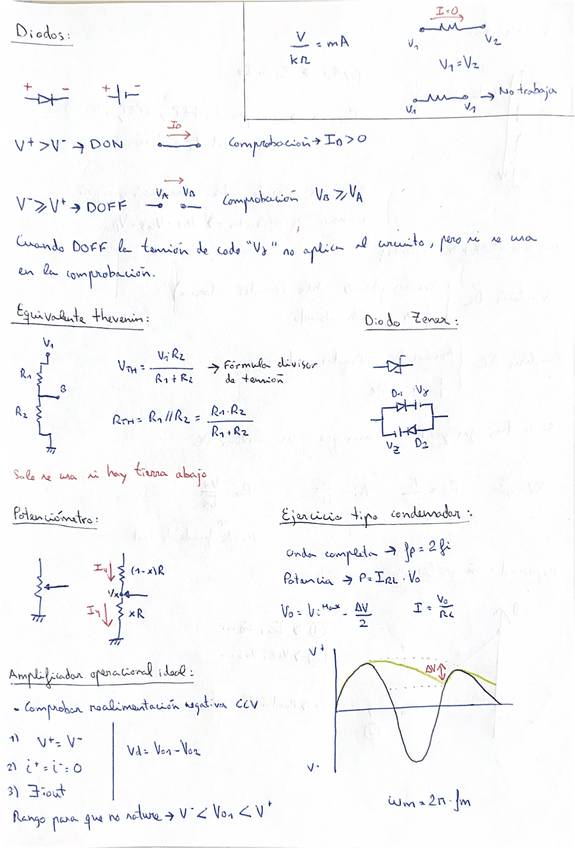 Diodos:
V/kΩ = mA
I=0
V1 V2
V1 = V2
V1 V1 → No trabaja
+ - + -
V⁺ > V⁻ → DON
ID
Comprobación → ID > 0
V⁻ ⩾ V⁺ → DOFF
VA VB
Comprobación VB ⩾ VA
Cuando DOFF la tensión de codo "Vγ" no aplica al circuito, pero si se usa
en la comprobación.
Equivalente thevenin:
V1
R1
B
R2
VTH = V1·R2 / R1+R2 → Fórmula divisor
de tensión
RTH = R1//R2 = R1·R2 / R1+R2
Solo se usa si hay tierra abajo
Diodo Zener:
D1 Vγ
VZ D2
Potenciómetro:
(1-x)R
Vx
xR
Ejercicio tipo condensador:
Onda completa → fp = 2fi
Potencia → P = IRL · Vo
Vo = Vi^Max - ΔV/2
I = Vo/RL
V⁺
ΔV
V⁻
ωm = 2π · fm
Amplificador operacional ideal:
• Comprobar realimentación negativa CCV
1) V⁺ = V⁻
2) i⁺ = i⁻ = 0
3) ∃iout
Vd = Vo1 - Vo2
Rango para que no sature → V⁻ < Vo1 < V⁺